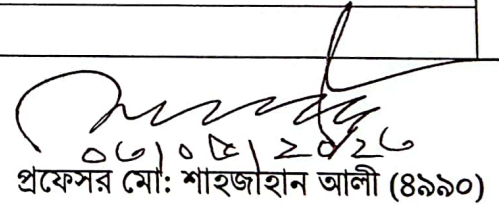 ০৬|০৫|২০২৬
প্রফেসর মো: শাহজাহান আলী (৪৯৯০)